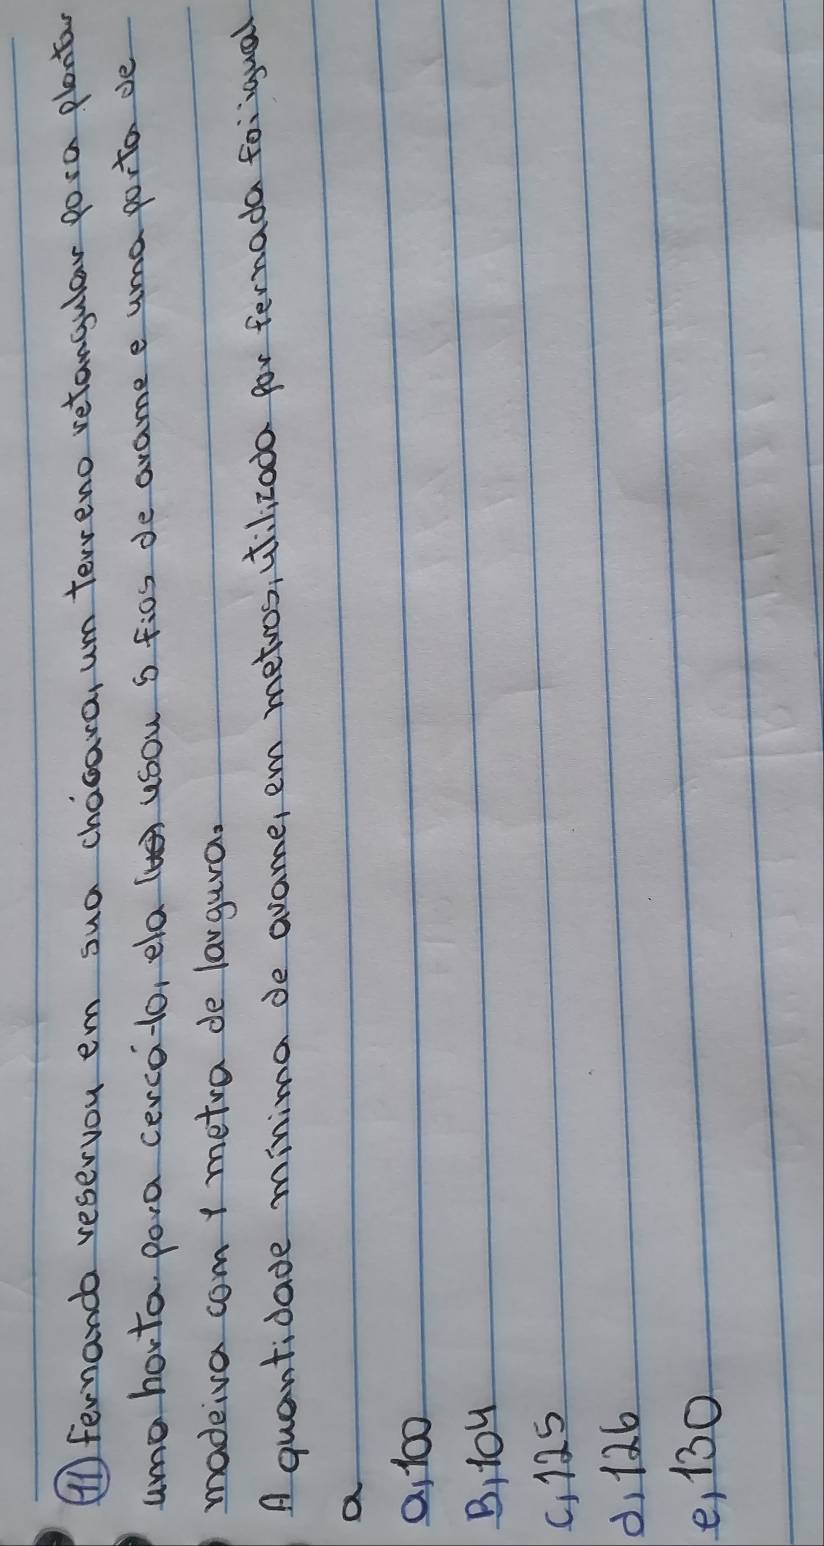 11) fernanda reservou em sua chácara, um terreno retangular para plantar
uma horta. para cercá-lo, ela usou 5 fios de arame e uma porta de
madeira com 1 metro de largura.
A quantidade mínima de arame, em metros, utilizada por fernada foi igual
a
a, 100
B, 104
c, 125
d, 126
e, 130